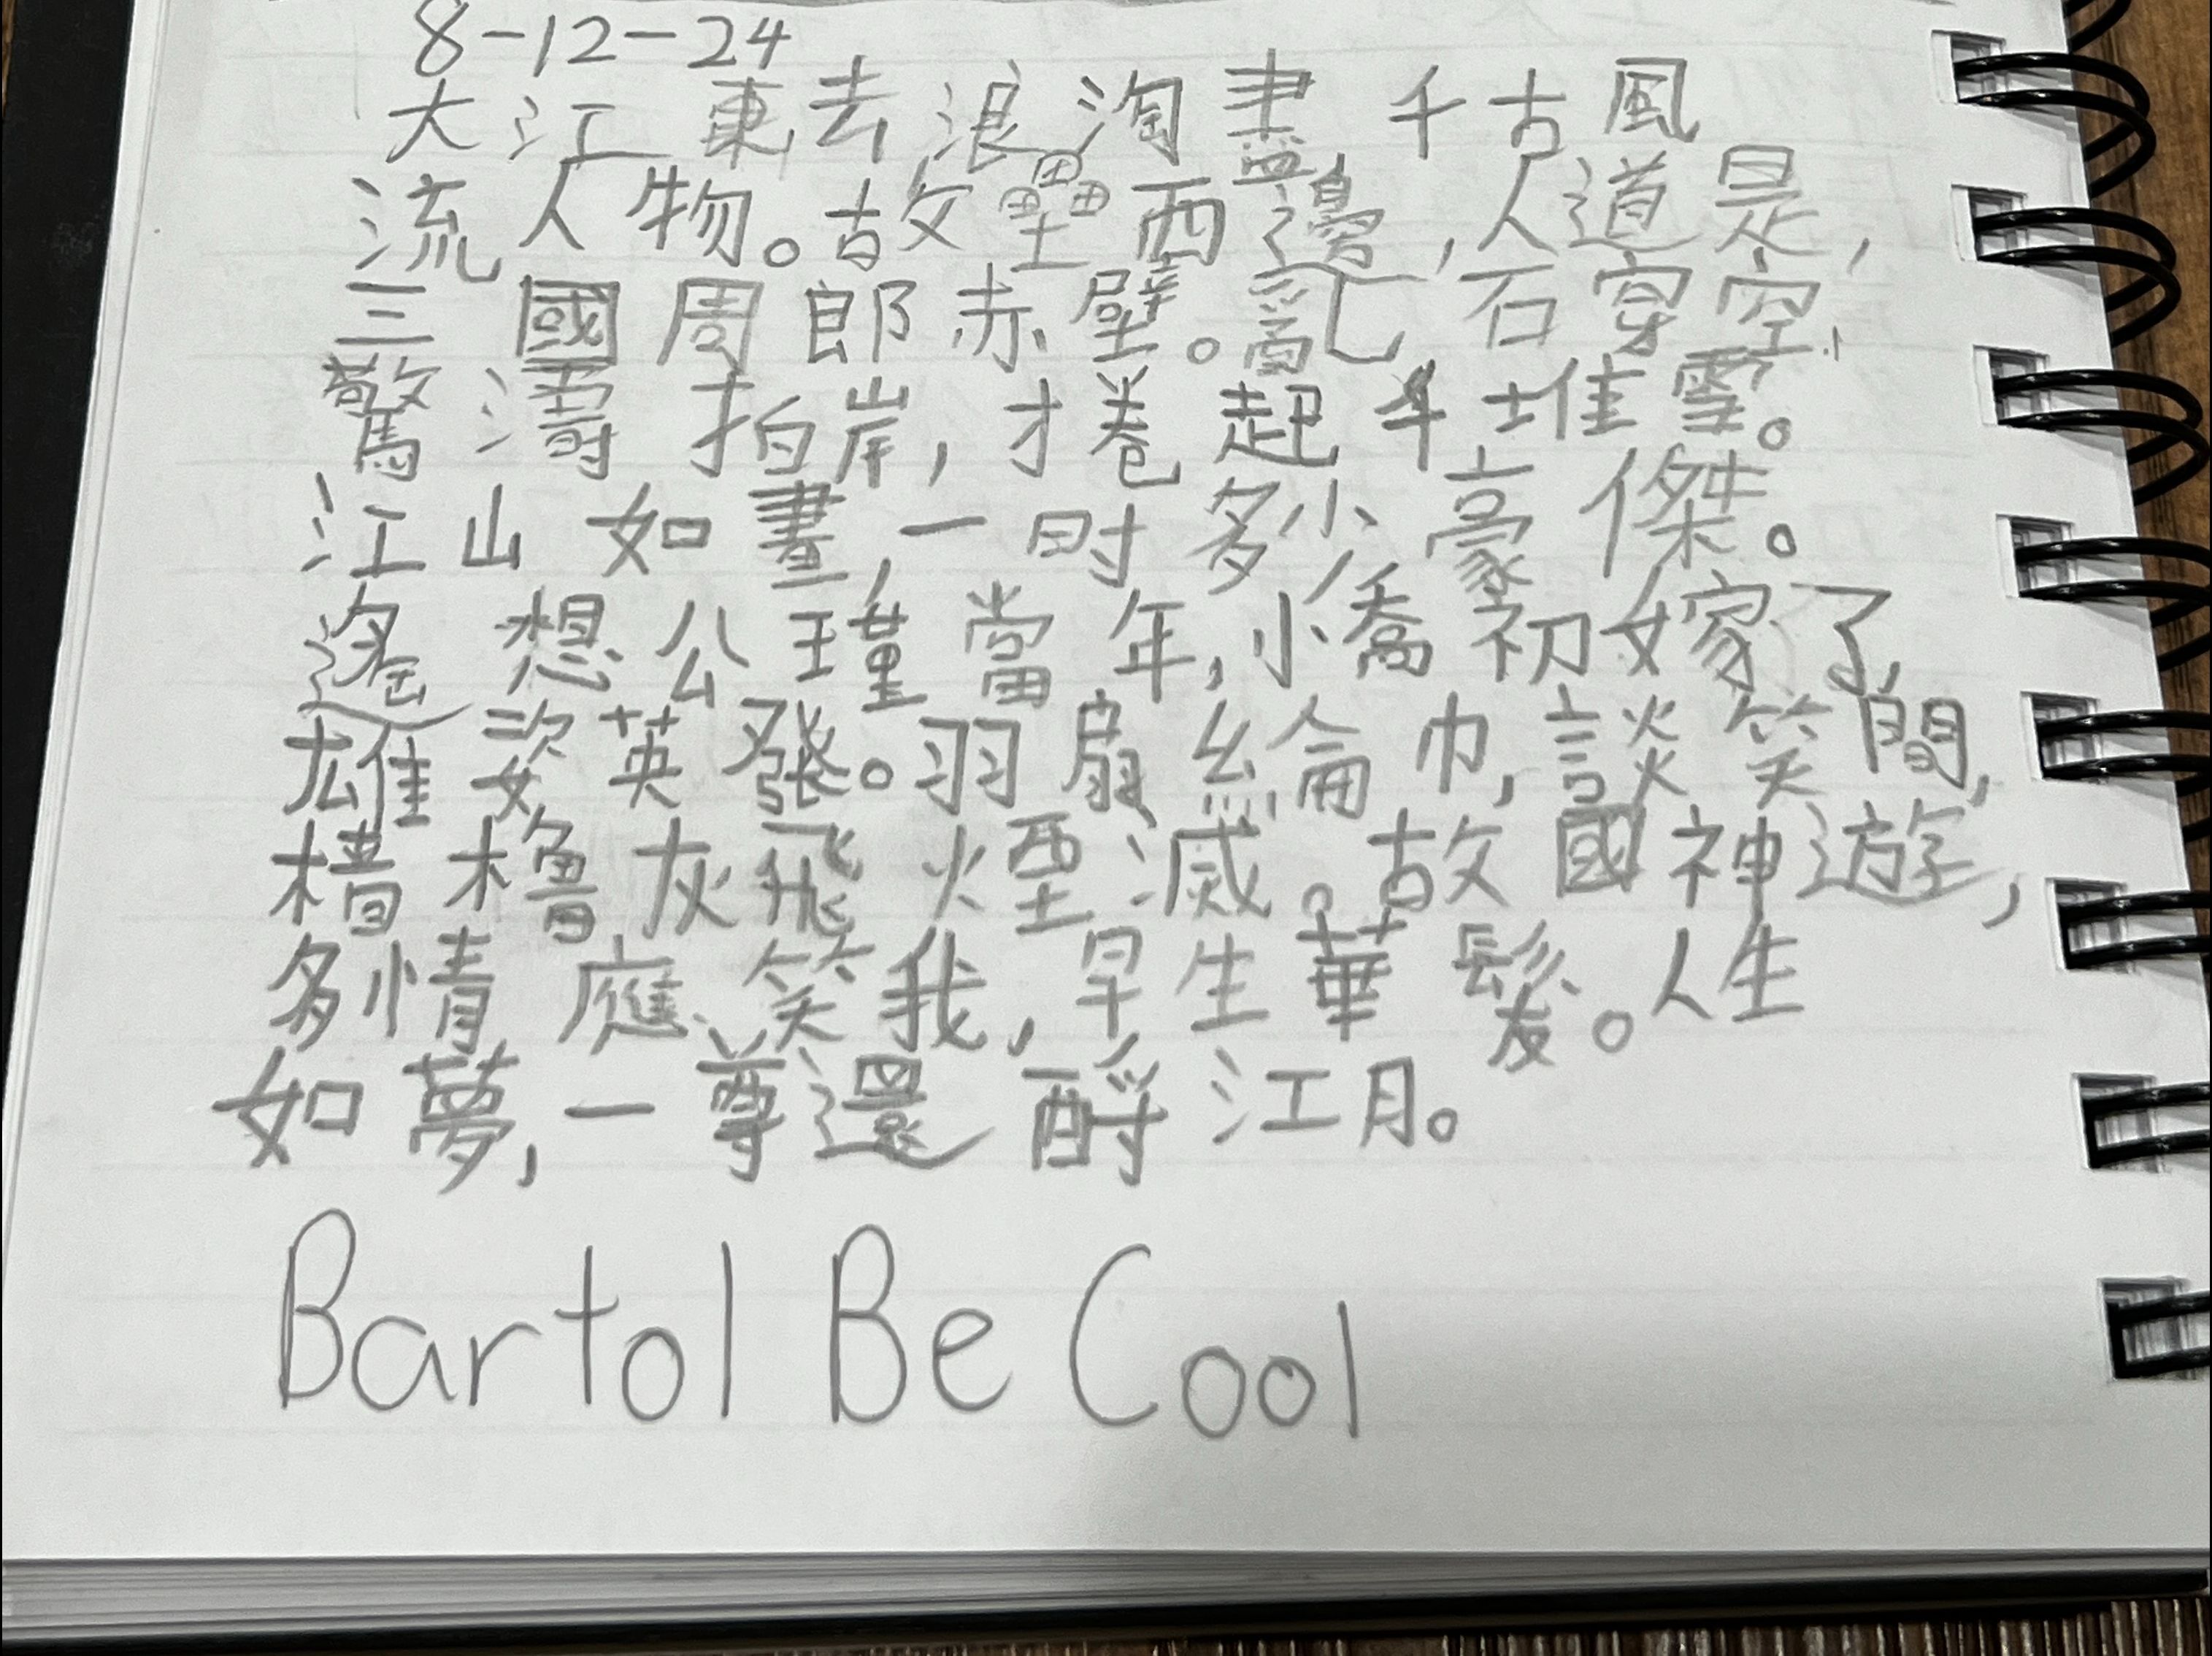 8-12-24
大江東去浪淘盡千古風
流人物。故壘西邊,人道是,
三國周郎赤壁。亂石穿空,
驚濤拍岸,才卷起千堆雪。
江山如畫,一时多少豪傑。
遙想公瑾當年,小喬初嫁了,
雄姿英發。羽扇綸巾,談笑間,
檣櫓灰飛煙滅。故國神遊,
多情應笑我,早生華髮。人生
如夢,一尊還酹江月。
Bartol Be Cool